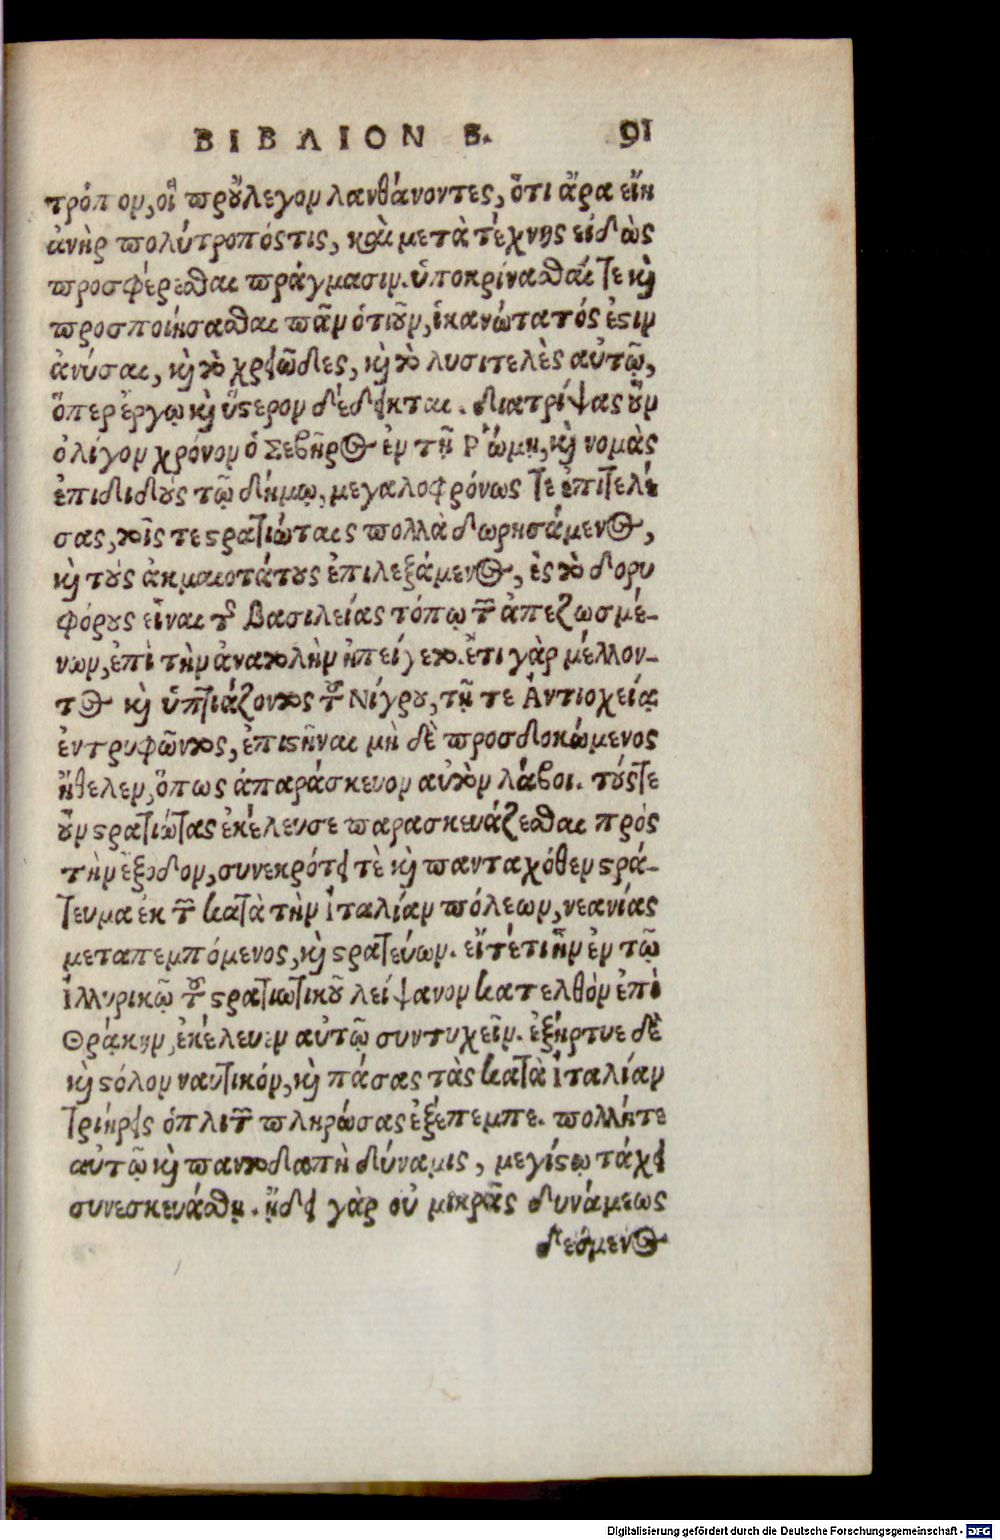 ΒΙΒΛΙΟΝ Β. 91
τρόπον, οἳ προὔλεγον λανθάνοντες, ὅτι ἄρα εἴη
ἀνὴρ πολύτροπός τις, καὶ μετὰ τέχνης εἰδὼς
προσφέρεσθαι πράγμασιν. ὑποκρίνασθαί τε καὶ
προσποιήσασθαι πᾶν ὁτιοῦν, ἱκανώτατός ἐστιν
ἀνύσαι, καὶ τὸ χρειῶδες, καὶ τὸ λυσιτελὲς αὐτῷ,
ὅπερ ἔργῳ καὶ ὕστερον δέδεικται. διατρίψας οὖν
ὀλίγον χρόνον ὁ Σεβῆρος ἐν τῇ Ῥώμῃ, καὶ νομὰς
ἐπιδιδοὺς τῷ δήμῳ, μεγαλοφρόνως τε ἐπιτελέ
σας, τοῖς τε στρατιώταις πολλὰ δωρησάμενος,
καὶ τοὺς ἀκμαιοτάτους ἐπιλεξάμενος, ἐς τὸ δορυ
φόρους εἶναι τῆς βασιλείας τόπῳ τῶν ἀπεζωσμέ-
νων, ἐπὶ τὴν ἀνατολὴν ἠπείγετο. ἔτι γὰρ μέλλον-
τος καὶ ὑπτιάζοντος τοῦ Νίγρου, τῇ τε Ἀντιοχείᾳ
ἐντρυφῶντος, ἐπιστῆναι μὴ δὲ προσδοκώμενος
ἤθελεν, ὅπως ἀπαράσκευον αὐτὸν λάβοι. τούς τε
οὖν στρατιώτας ἐκέλευσε παρασκευάζεσθαι πρὸς
τὴν ἔξοδον, συνεκρότει τὲ καὶ πανταχόθεν στρά-
τευμα ἐκ τῶν κατὰ τὴν Ἰταλίαν πόλεων, νεανίας
μεταπεμπόμενος, καὶ στρατεύων. εἴ τέ τι ἦν ἐν τῷ
Ἰλλυρικῷ τοῦ στρατιωτικοῦ λείψανον κατελθὸν ἐπὶ
Θρᾴκην, ἐκέλευεν αὐτῷ συντυχεῖν. ἐξήρτυε δὲ
καὶ στόλον ναυτικόν, καὶ πάσας τὰς κατὰ Ἰταλίαν
τριήρεις ὁπλιτῶν πληρώσας ἐξέπεμπε. πολλή τε
αὐτῷ καὶ παντοδαπὴ δύναμις, μεγίστῳ τάχει
συνεσκευάσθη. ᾔδει γὰρ οὐ μικρᾶς δυνάμεως
δεόμενος
Digitalisierung gefördert durch die Deutsche Forschungsgemeinschaft - DFG